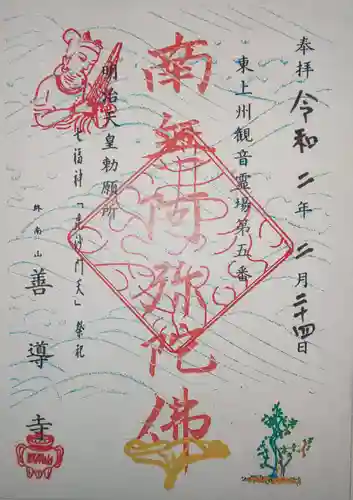 奉拝 令和二年二月二十四日
東上州観音霊場第五番
南無阿弥陀佛
明治天皇勅願所
七福神「毘沙門天」祭祀
終南山
善導寺